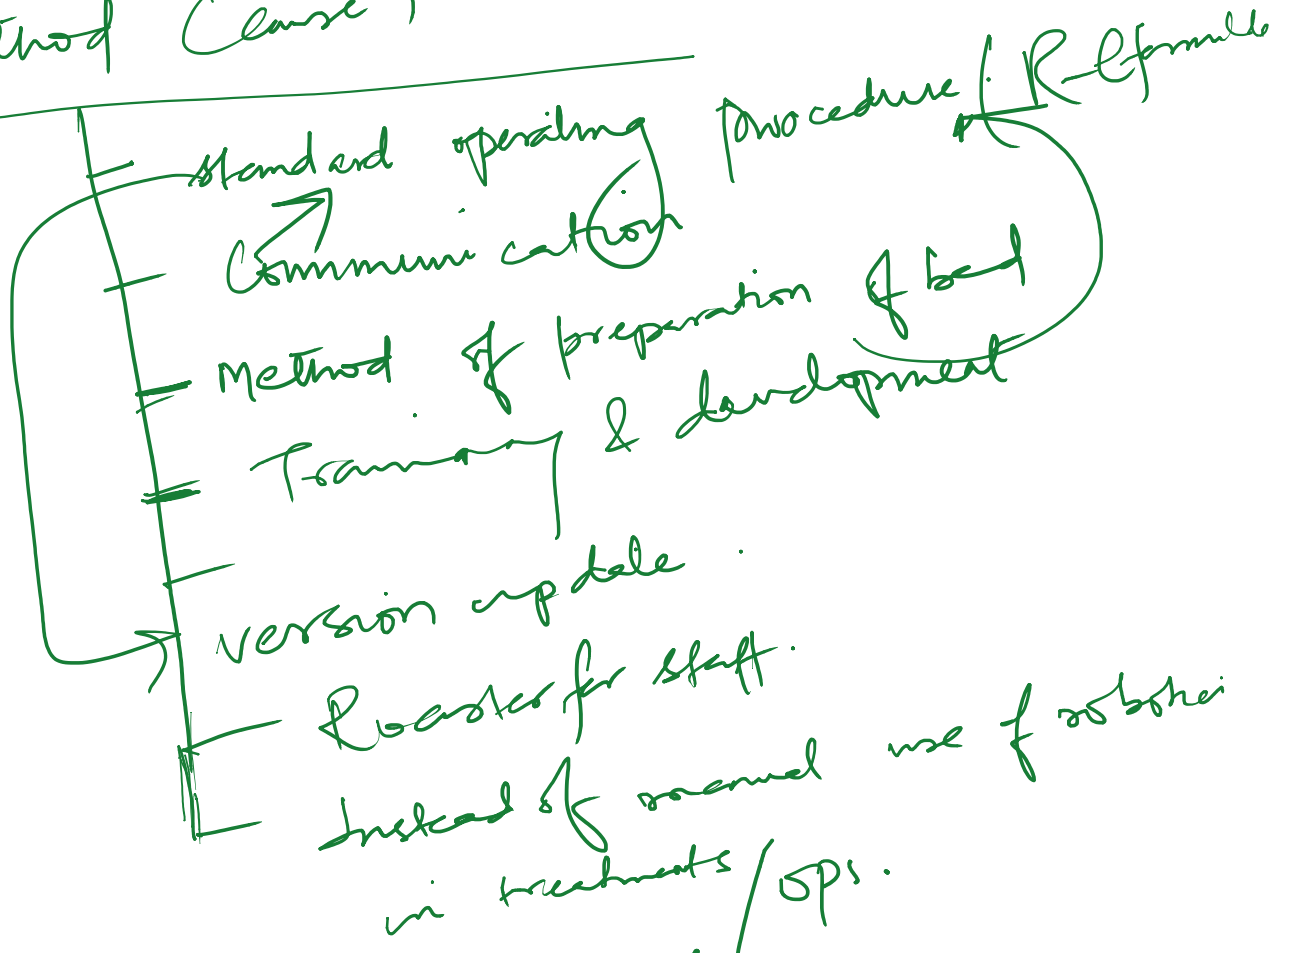 thod Causes
standard operating procedure/
Communication
Method of preparation of bed
Training & development
version update.
Roaster for staff.
Instead of manual use of robotics
in treatments/ops.